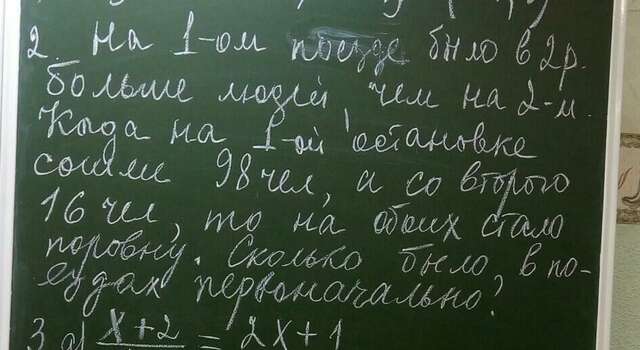 2. На 1-ом поезде было в 2р.
больше людей, чем на 2-м.
Когда на 1-ой остановке
сошли 98 чел, а со второго
16 чел, то на обоих стало
поровну. Сколько было в по-
ездах первоначально?
3 а) x+2 = 2x+1